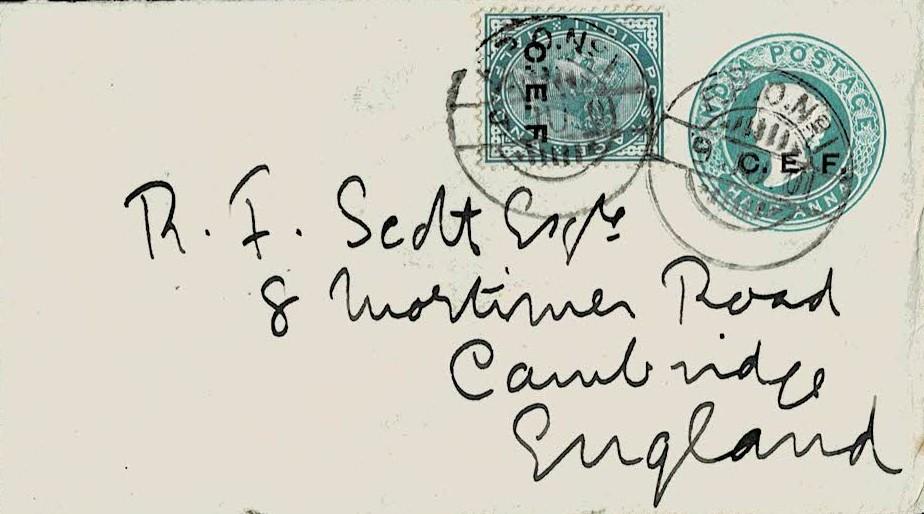 INDIA POSTAGE
HALF ANNA
C. E. F.
INDIA POSTAGE
C. E. F.
HALF ANNA
R. F. Scott Esqre
8 Mortimer Road
Cambridge
England